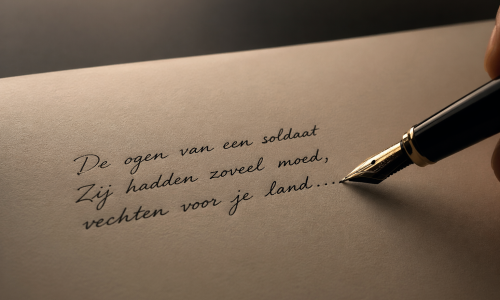 De ogen van een soldaat
Zij hadden zoveel moed,
vechten voor je land....